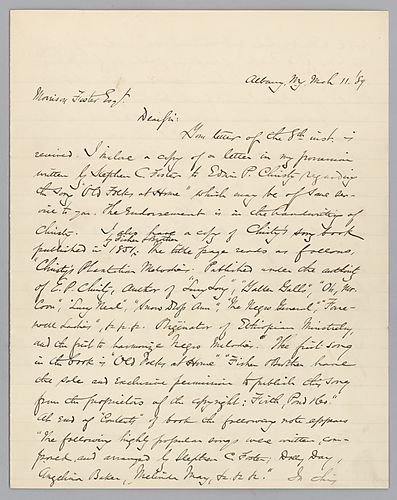 Albany, Ny. Mch 11. '89
Morrison Foster Esqr.
Dear Sir:
Your letter of the 8th inst. is
received. I inclose a copy of a letter in my possession
written by Stephen C. Foster to Edwin P. Christy regarding
the song "Old Folks at Home" which may be of some
use to you. The Endorsement is in the handwriting of
Christy. I also have a copy of Christy's song book
by Fisher & Brother
published in 1851. The title page reads as follows,
"Christy's Plantation Melodies. Published under the authority
of E. P. Christy, Author of "Lucy Long", "Gallen Gall", "Oh, Mr.
Coon", "Lucy Neal", "Snow Drop Ann", "The Negro General", "Fare-
well Ladies", &c. &c. Originator of Ethiopian Minstrelsy,
and the first to harmonize Negro Melodies." The first song
in the book is "Old Folks at Home" "Fisher & Brother have
the sole and exclusive permission to publish this song
from the proprietors of the copyright: Firth, Pond & Co."
At End of "Contents" of book the following note appears
"The following highly popular songs were written, com-
posed, and arranged by Stephen C. Foster, Dolly Day,
Angelina Baker, Melinda May, &c. &c." In